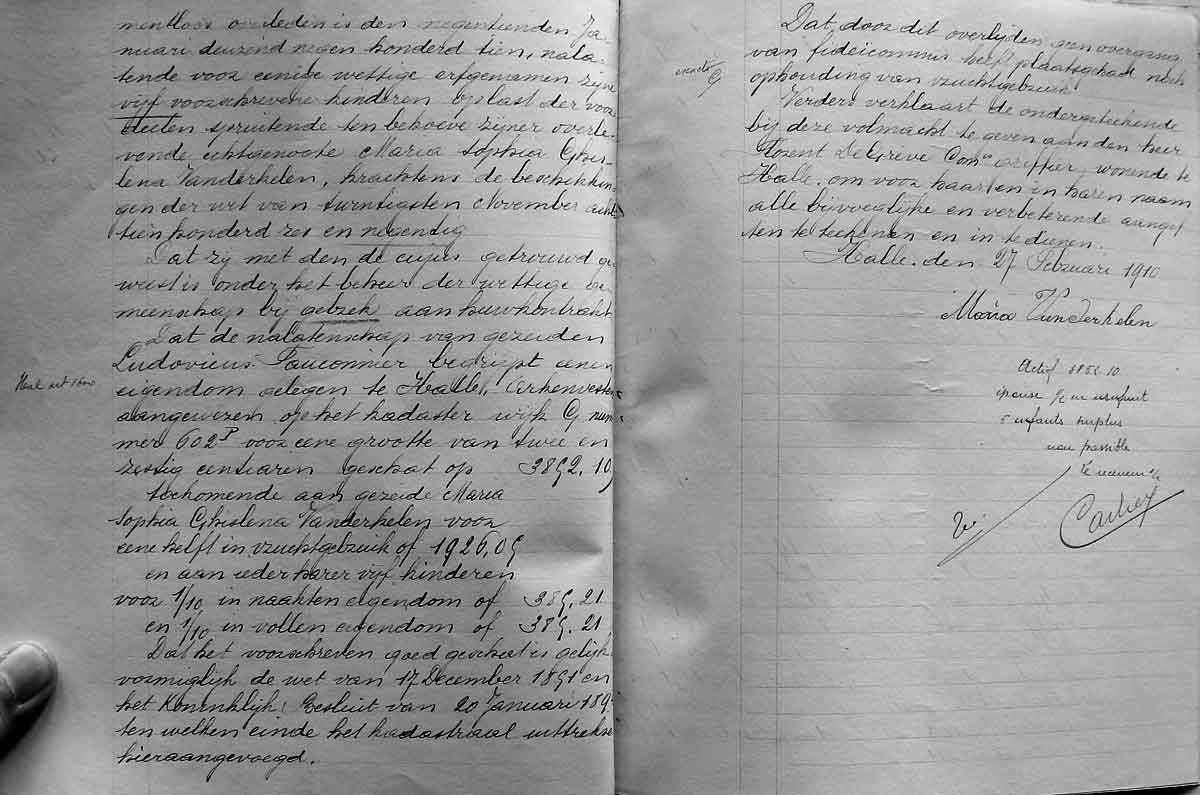 mentloos overleden is den negentienden Ja-
nuari duizend negen honderd tien, nala-
tende voor eenige wettige erfgenamen zijne
vijf voorschrevene kinderen op last der voor-
deelen spruitende ten behoeve zijner overle-
vende echtgenoote Maria Sophia Ghis-
lena Vanderkelen, krachtens de beschikkin-
gen der wet van twintigsten November acht
tien honderd zes en negentig
Dat zij met den de cujus getrouwd ge
weest is onder het beheer der wettige ge
meenschap bij gebrek aan huwkontrakt
Dat de nalatenschap van gezeiden
Ludovicus Fauconnier begrijpt eenen
eigendom gelegen te Halle,
aangewezen op het kadaster wijk G num
mer 602P voor eene grootte van twee en
zestig centiaren geschat op 3852.10
toekomende aan gezeide Maria
Sophia Ghislena Vanderkelen voor
eene helft in vruchtgebruik of 1926,05
en aan ieder harer vijf kinderen
voor 1/10 in naakten eigendom of 385.21
en 1/10 in vollen eigendom of 385.21
Dat het voorschreven goed geschat is gelijk
vormiglijk de wet van 17 December 1851 en
het Koninklijk Besluit van 20 Januari 185
ten welken einde het kadastraal uittreksel
hieraangevoegd.
Dat door dit overlijden geen overgang
van fideicommis heeft plaatsgehad noch
ophouding van vruchtgebruik
Verders verklaart de ondergeteekende
bij deze volmacht te geven aan den heer
Florent De Greve Comis griffier, wonende te
Halle, om voor haar en in haren naam
alle bijvoeglijke en verbeterende aangif
ten te teekenen en in te dienen.
Halle, den 27 Februari 1910
Maria Vanderkelen
Actif 3852.10
épouse 1/2 en usufruit
5 enfants surplus
non passible
Le receveur